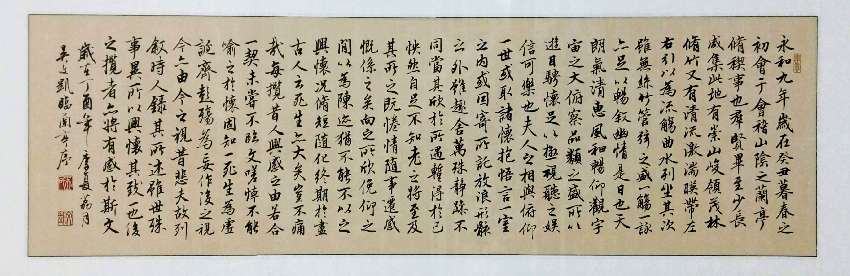 永和九年歲在癸丑暮春之
初會于會稽山陰之蘭亭
脩稧事也群賢畢至少長
咸集此地有崇山峻領茂林
脩竹又有清流激湍暎帶左
右引以為流觴曲水列坐其次
雖無絲竹管弦之盛一觴一詠
亦足以暢敘幽情是日也天
朗氣清惠風和暢仰觀宇
宙之大俯察品類之盛所以
遊目騁懷足以極視聽之娛
信可樂也夫人之相與俯仰
一世或取諸懷抱悟言一室
之内或因寄所託放浪形骸
之外雖趣舍萬殊靜躁不
同當其欣於所遇暫得於己
怏然自足不知老之將至及
其所之既惓情隨事遷感
慨係之矣向之所欣俛仰之
間以為陳迹猶不能不以之
興懷況脩短隨化終期於盡
古人云死生亦大矣豈不痛
哉每攬昔人興感之由若合
一契未嘗不臨文嗟悼不能
喻之於懷固知一死生為虛
誕齊彭殤為妄作後之視
今亦由今之視昔悲夫故列
敘時人錄其所述雖世殊
事異所以興懷其致一也後
之攬者亦將有感於斯文
歲在丁酉年